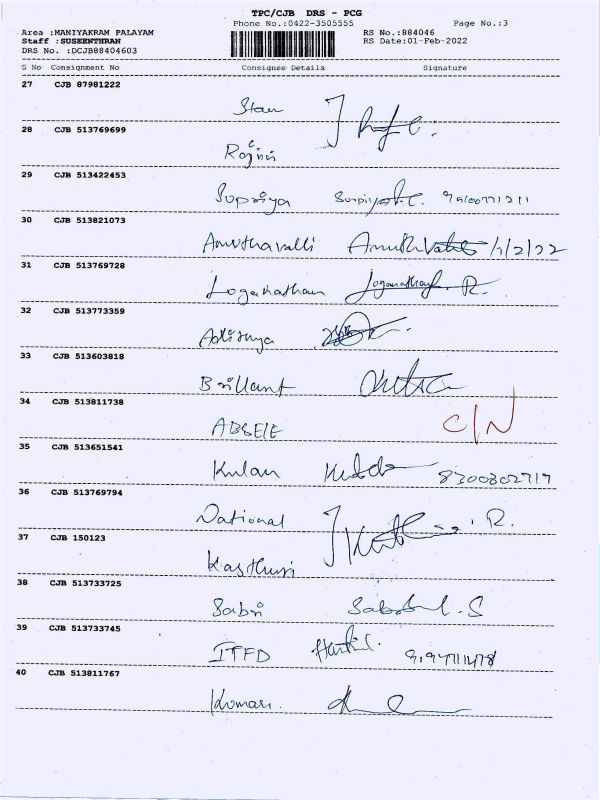 TPC/CJB DRS - PCG
Phone No.:0422-3505555 Page No.:3
Area :MANIYAKRAM PALAYAM RS No.:884046
Staff :SUSEENTHRAN RS Date:01-Feb-2022
DRS No. :DCJB88404603
S No Consignment No Consignee Details Signature
27 CJB 87981222
Stan
28 CJB 513769699
Rajni
29 CJB 513422453
Supriya
30 CJB 513821073
Anuthavalli 1/2/22
31 CJB 513769728
Loganathan Loganathan R.
32 CJB 513773359
Adithya
33 CJB 513603818
Brillant
34 CJB 513811738
C/N
35 CJB 513651541
Kulan 8300802717
36 CJB 513769794
National R.
37 CJB 150123
Kasthuri
38 CJB 513733725
Sabri
39 CJB 513733745
ITFD
40 CJB 513811767
Kumari.